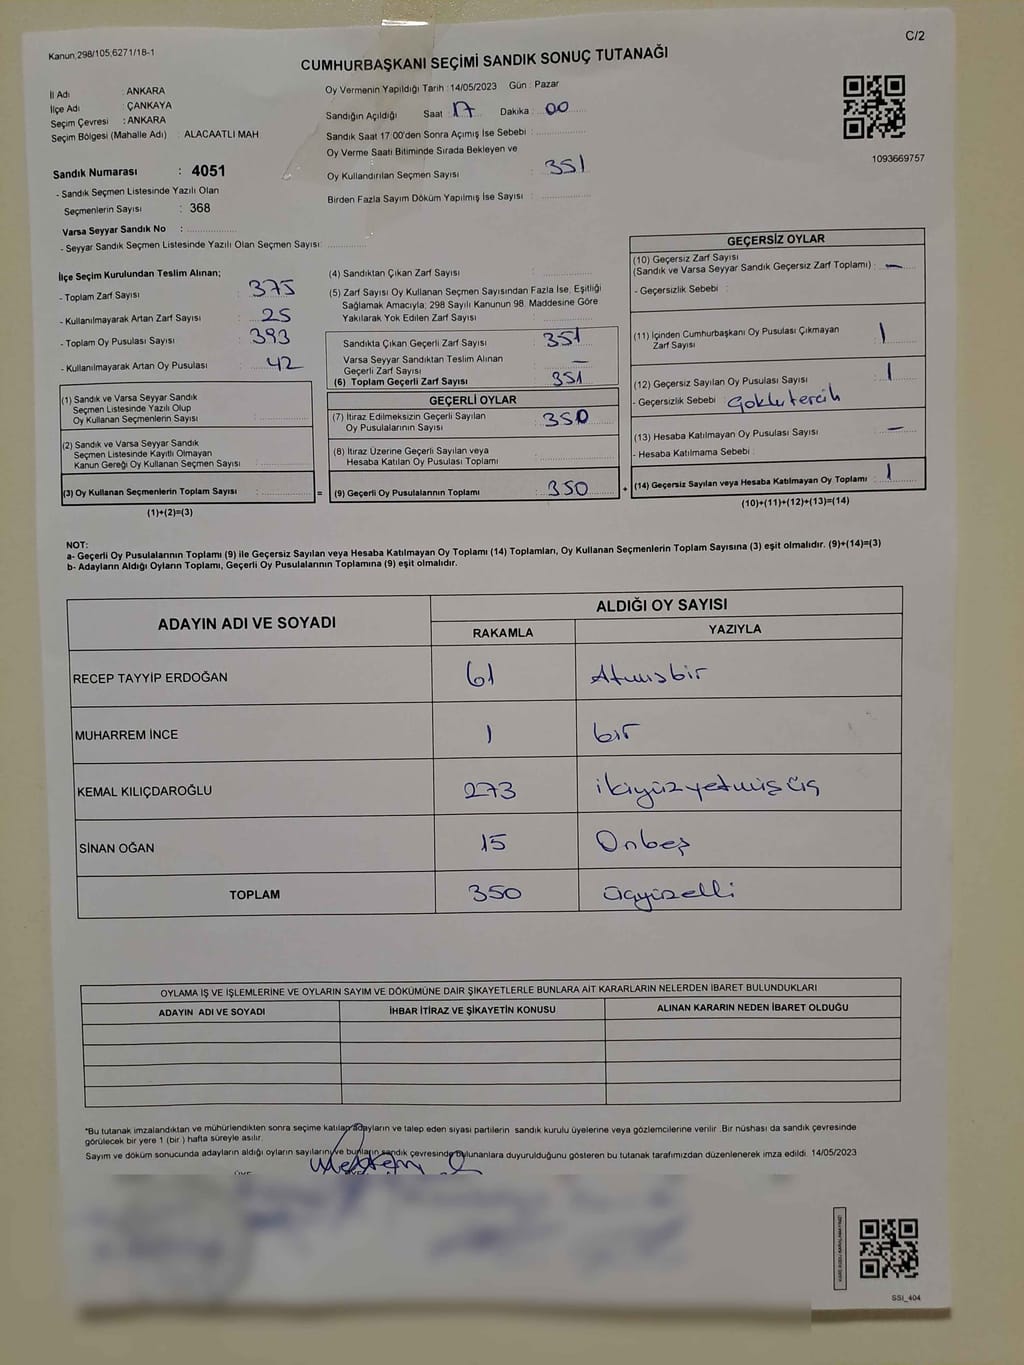 Kanun,298/105,6271/18-1
C/2
CUMHURBAŞKANI SEÇİMİ SANDIK SONUÇ TUTANAĞI
İl Adı : ANKARA
İlçe Adı : ÇANKAYA
Seçim Çevresi : ANKARA
Seçim Bölgesi (Mahalle Adı) : ALACAATLI MAH.
Oy Vermenin Yapıldığı Tarih : 14/05/2023 Gün : Pazar
Sandığın Açıldığı Saat : 17 Dakika : 00
Sandık Saat 17:00'den Sonra Açımış İse Sebebi :
Oy Verme Saati Bitiminde Sırada Bekleyen ve
Oy Kullandırılan Seçmen Sayısı : 351
Birden Fazla Sayım Döküm Yapılmış İse Sayısı :
1093669757
Sandık Numarası : 4051
- Sandık Seçmen Listesinde Yazılı Olan
Seçmenlerin Sayısı : 368
Varsa Seyyar Sandık No :
- Seyyar Sandık Seçmen Listesinde Yazılı Olan Seçmen Sayısı:
İlçe Seçim Kurulundan Teslim Alınan;
- Toplam Zarf Sayısı : 375
- Kullanılmayarak Artan Zarf Sayısı : 25
- Toplam Oy Pusulası Sayısı : 393
- Kullanılmayarak Artan Oy Pusulası : 42
(1) Sandık ve Varsa Seyyar Sandık
Seçmen Listesinde Yazılı Olup
Oy Kullanan Seçmenlerin Sayısı :
(2) Sandık ve Varsa Seyyar Sandık
Seçmen Listesinde Kayıtlı Olmayan
Kanun Gereği Oy Kullanan Seçmen Sayısı :
(3) Oy Kullanan Seçmenlerin Toplam Sayısı :
(1)+(2)=(3)
(4) Sandıktan Çıkan Zarf Sayısı :
(5) Zarf Sayısı Oy Kullanan Seçmen Sayısından Fazla İse, Eşitliği
Sağlamak Amacıyla; 298 Sayılı Kanunun 98. Maddesine Göre
Yakılarak Yok Edilen Zarf Sayısı :
Sandıkta Çıkan Geçerli Zarf Sayısı : 351
Varsa Seyyar Sandıktan Teslim Alınan
Geçerli Zarf Sayısı : —
(6) Toplam Geçerli Zarf Sayısı : 351
GEÇERLİ OYLAR
(7) İtiraz Edilmeksizin Geçerli Sayılan
Oy Pusulalarının Sayısı : 350
(8) İtiraz Üzerine Geçerli Sayılan veya
Hesaba Katılan Oy Pusulası Toplamı :
= (9) Geçerli Oy Pusulalarının Toplamı : 350
GEÇERSİZ OYLAR
(10) Geçersiz Zarf Sayısı
(Sandık ve Varsa Seyyar Sandık Geçersiz Zarf Toplamı) : —
- Geçersizlik Sebebi :
(11) İçinden Cumhurbaşkanı Oy Pusulası Çıkmayan
Zarf Sayısı : 1
(12) Geçersiz Sayılan Oy Pusulası Sayısı : 1
- Geçersizlik Sebebi : Çoklu tercih
(13) Hesaba Katılmayan Oy Pusulası Sayısı : —
- Hesaba Katılmama Sebebi :
+ (14) Geçersiz Sayılan veya Hesaba Katılmayan Oy Toplamı : 1
(10)+(11)+(12)+(13)=(14)
NOT:
a- Geçerli Oy Pusulalarının Toplamı (9) ile Geçersiz Sayılan veya Hesaba Katılmayan Oy Toplamı (14) Toplamları, Oy Kullanan Seçmenlerin Toplam Sayısına (3) eşit olmalıdır. (9)+(14)=(3)
b- Adayların Aldığı Oyların Toplamı, Geçerli Oy Pusulalarının Toplamına (9) eşit olmalıdır.
ADAYIN ADI VE SOYADI
ALDIĞI OY SAYISI
RAKAMLA YAZIYLA
RECEP TAYYİP ERDOĞAN 61 Atmışbir
MUHARREM İNCE 1 bir
KEMAL KILIÇDAROĞLU 273 ikiyüzyetmişüç
SİNAN OĞAN 15 Onbeş
TOPLAM 350 üçyüzelli
OYLAMA İŞ VE İŞLEMLERİNE VE OYLARIN SAYIM VE DÖKÜMÜNE DAİR ŞİKAYETLERLE BUNLARA AİT KARARLARIN NELERDEN İBARET BULUNDUKLARI
ADAYIN ADI VE SOYADI İHBAR İTİRAZ VE ŞİKAYETİN KONUSU ALINAN KARARIN NEDEN İBARET OLDUĞU
*Bu tutanak imzalandıktan ve mühürlendikten sonra seçime katılan adayların ve talep eden siyasi partilerin sandık kurulu üyelerine veya gözlemcilerine verilir. Bir nüshası da sandık çevresinde
görülecek bir yere 1 (bir ) hafta süreyle asılır.
Sayım ve döküm sonucunda adayların aldığı oyların sayılarını ve bunların sandık çevresinde bulunanlara duyurulduğunu gösteren bu tutanak tarafımızdan düzenlenerek imza edildi. 14/05/2023
SSI_404